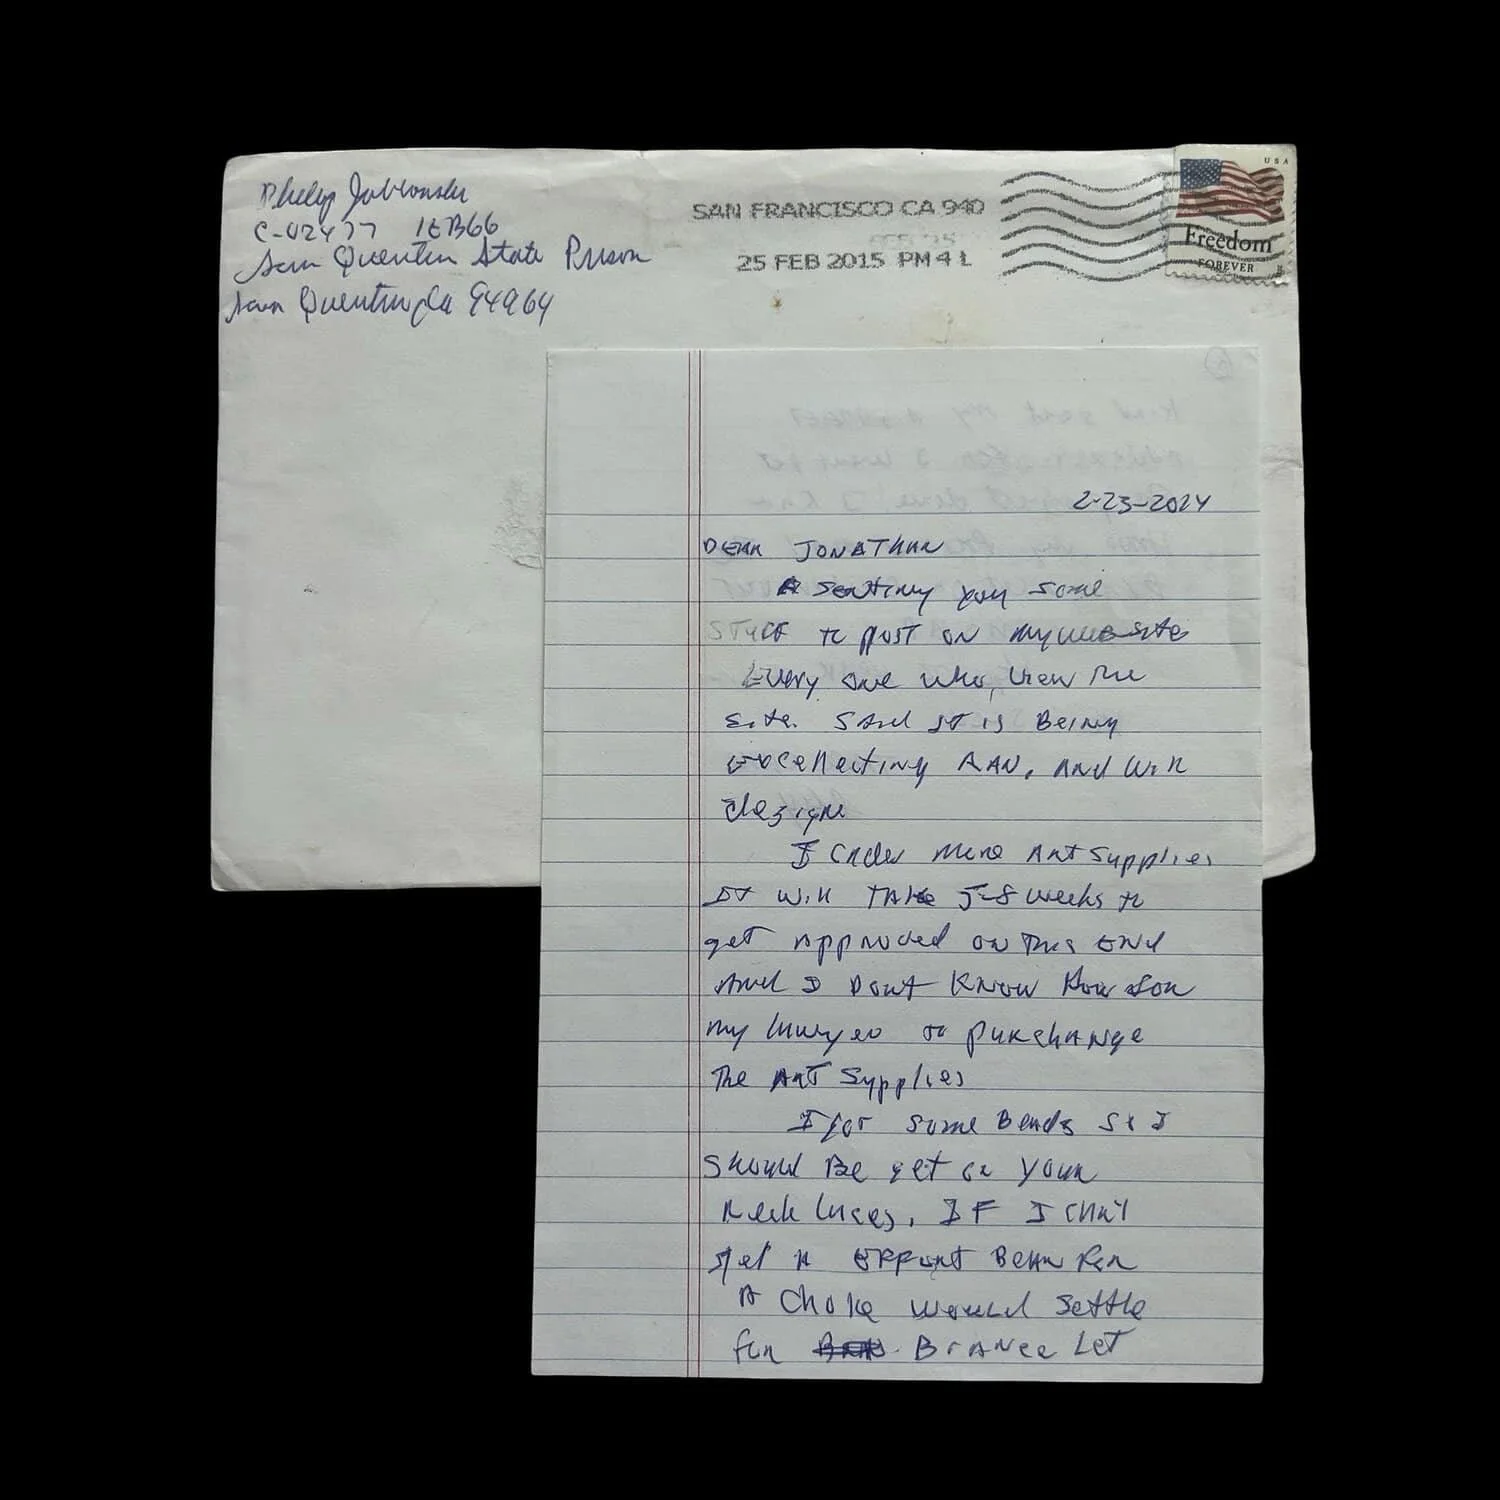 Philip Jablonski
C-02477 1EB66
San Quentin State Prison
San Quentin, Ca 94964
SAN FRANCISCO CA 940
25 FEB 2015 PM 4 L
USA
Freedom
FOREVER
2-23-2024
DEAR JONATHAN
A senting you some
STUFF to post on my website
Every one who, view the
site. Said IT is Being
and will
design
I order more Art Supplies
It will TAKE 5-8 weeks to
get approved on this END
And I Dont Know How Son
my lawyer to purchange
The ART Supplies
I got some Beads So I
Should Be get on your
Neck laces, IF I can't
get a Bear for
A Choke would settle
for Brancelet